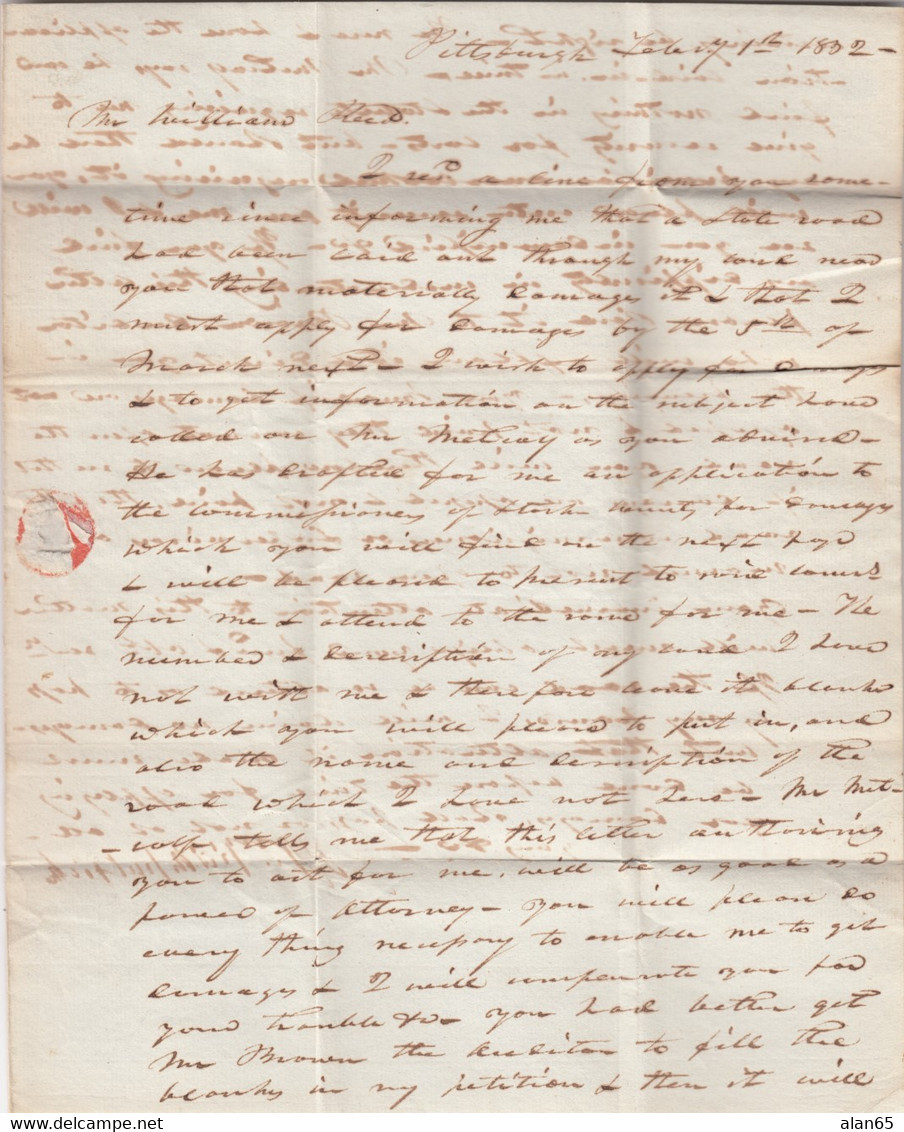 Pittsburgh Feby 1st 1832 -
Mr William Reed.
I recd a line from you some-
time since informing me that a State road
had been laid out through my land near
you that materially damages it & that I
must apply for damages by the 5th of
March next - I wish to apply for damages
& to get information on the subject have
called on Mr Metcalf as you advised -
He has drafted for me an application to
the commissioners of Stark County for damages
which you will find on the next page
& will be pleased to present to said Comrs
for me & attend to the same for me - The
number & description of my land I have
not with me & therefore leave it blank
which you will please to put in, and
also the name and description of the
road which I have not here - Mr Met-
-calf tells me that this letter authorising
you to act for me, will be as good as a
power of Attorney - you will please do
every thing necessary to enable me to get
damages & I will compensate you for
your trouble &c - you had better get
Mr Brown the Auditor to fill the
blanks in my petition & then it will
alan65